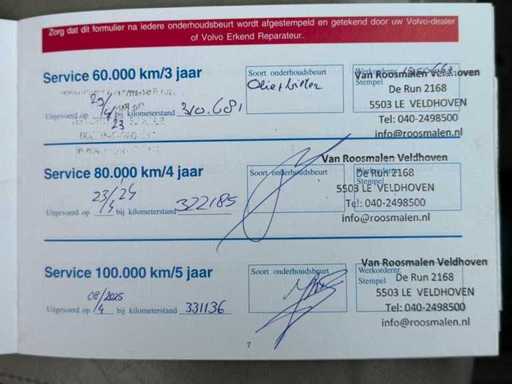 Zorg dat dit formulier na iedere onderhoudsbeurt wordt afgestempeld en getekend door uw Volvo-dealer
of Volvo Erkend Reparateur.
Service 60.000 km/3 jaar
Soort onderhoudsbeurt
Olie+filter
Werkordernr.
Stempel
Van Roosmalen Veldhoven
De Run 2168
5503 LE VELDHOVEN
Tel: 040-2498500
info@roosmalen.nl
Uitgevoerd op bij kilometerstand 310.681
Service 80.000 km/4 jaar
Soort onderhoudsbeurt
Stempel
Van Roosmalen Veldhoven
De Run 2168
5503 LE VELDHOVEN
Tel: 040-2498500
info@roosmalen.nl
Uitgevoerd op bij kilometerstand 322185
Service 100.000 km/5 jaar
Soort onderhoudsbeurt
Werkordernr.
Stempel
Van Roosmalen Veldhoven
De Run 2168
5503 LE VELDHOVEN
Tel: 040-2498500
info@roosmalen.nl
Uitgevoerd op bij kilometerstand 331136
7